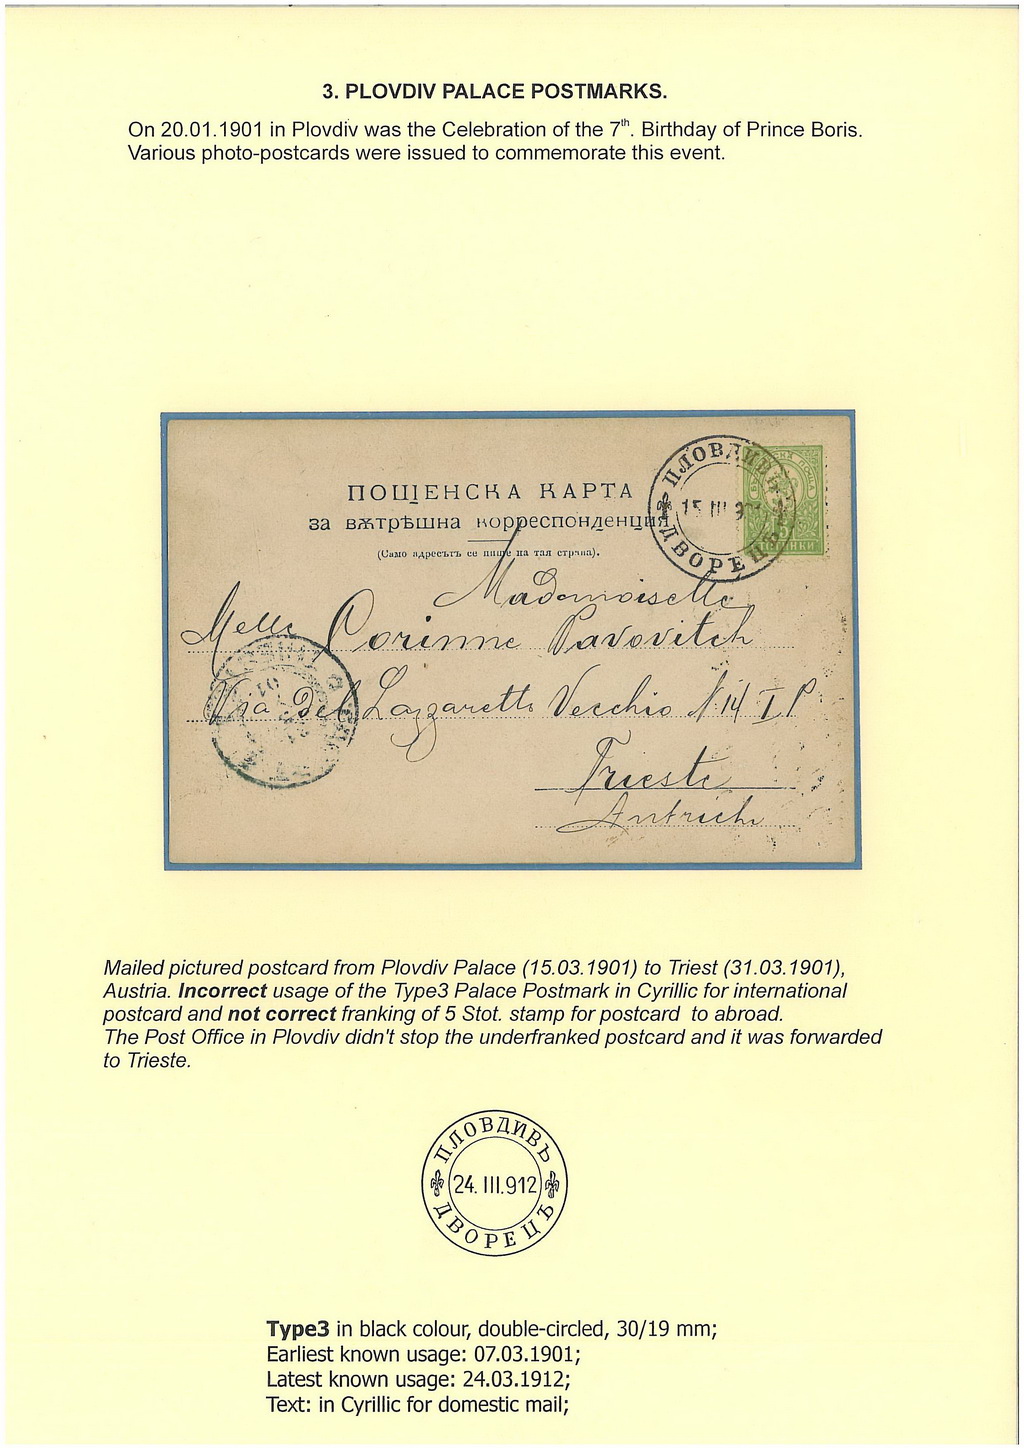 3. PLOVDIV PALACE POSTMARKS.
On 20.01.1901 in Plovdiv was the Celebration of the 7th. Birthday of Prince Boris.
Various photo-postcards were issued to commemorate this event.
ПЛОВДИВЪ
15 III 901
ДВОРЕЦЪ
ПОЩЕНСКА КАРТА
за вѫтрѣшна корреспонденция
(Само адресътъ се пише на тая страна).
Mademoiselle
Melle Corinne Pavovitch
Via Del Lazzaretto Vecchio N 14 I P.
Trieste
Autriche
Mailed pictured postcard from Plovdiv Palace (15.03.1901) to Triest (31.03.1901),
Austria. Incorrect usage of the Type3 Palace Postmark in Cyrillic for international
postcard and not correct franking of 5 Stot. stamp for postcard to abroad.
The Post Office in Plovdiv didn't stop the underfranked postcard and it was forwarded
to Trieste.
ПЛОВДИВЪ
24. III.912
ДВОРЕЦЪ
Type3 in black colour, double-circled, 30/19 mm;
Earliest known usage: 07.03.1901;
Latest known usage: 24.03.1912;
Text: in Cyrillic for domestic mail;